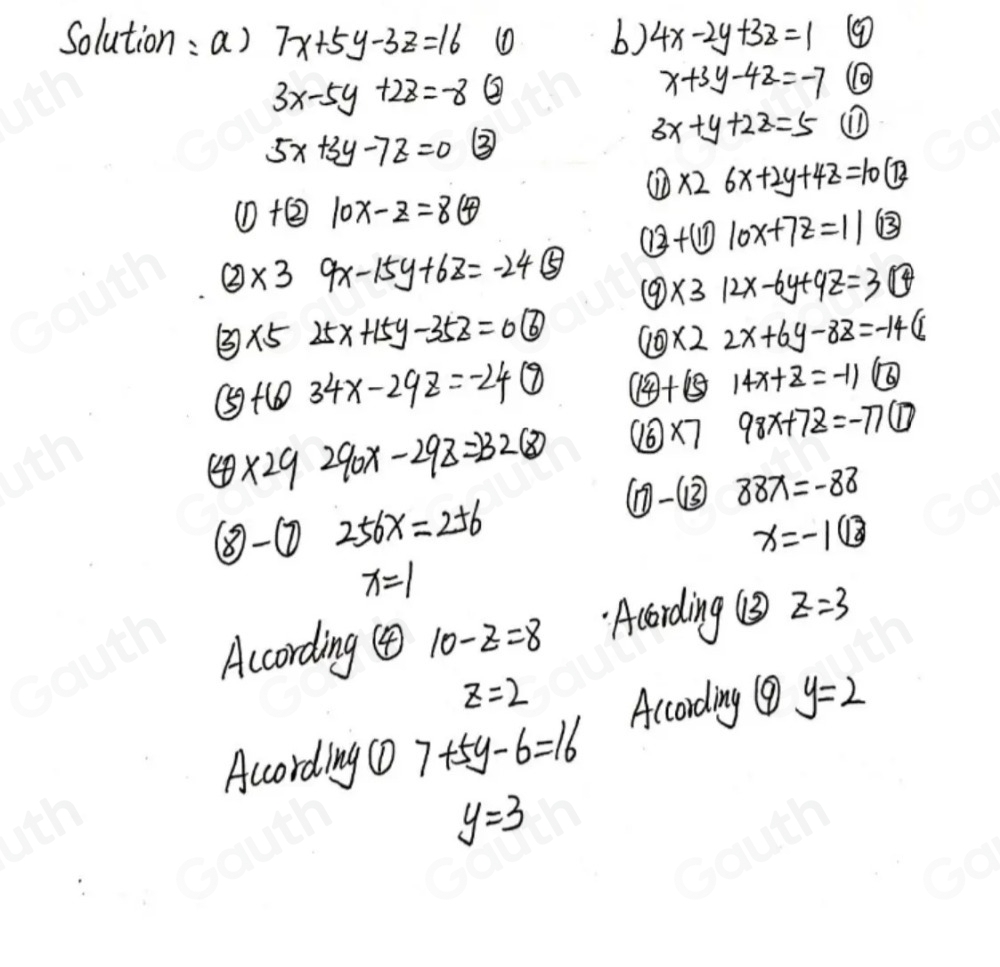 Solution: a) 7x+5y-3z=16 ①
3x-5y+2z=-8 ②
5x+3y-7z=0 ③
①+② 10x-z=8 ④
②×3 9x-15y+6z=-24 ⑤
③×5 25x+15y-35z=0 ⑥
⑤+⑥ 34x-29z=-24 ⑦
④×29 290x-29z=232 ⑧
⑧-⑦ 256x=256
x=1
According ④ 10-z=8
z=2
According ① 7+5y-6=16
y=3
b) 4x-2y+3z=1 ⑨
x+3y-4z=-7 ⑩
3x+y+2z=5 ⑪
⑪×2 6x+2y+4z=10 ⑫
⑫+⑪ 10x+7z=11 ⑬
⑨×3 12x-6y+9z=3 ⑭
⑩×2 2x+6y-8z=-14
⑭+⑮ 14x+z=-11 ⑯
⑯×7 98x+7z=-77 ⑰
⑰-⑬ 88x=-88
x=-1 ⑱
According ⑬ z=3
According ⑨ y=2
Gauth